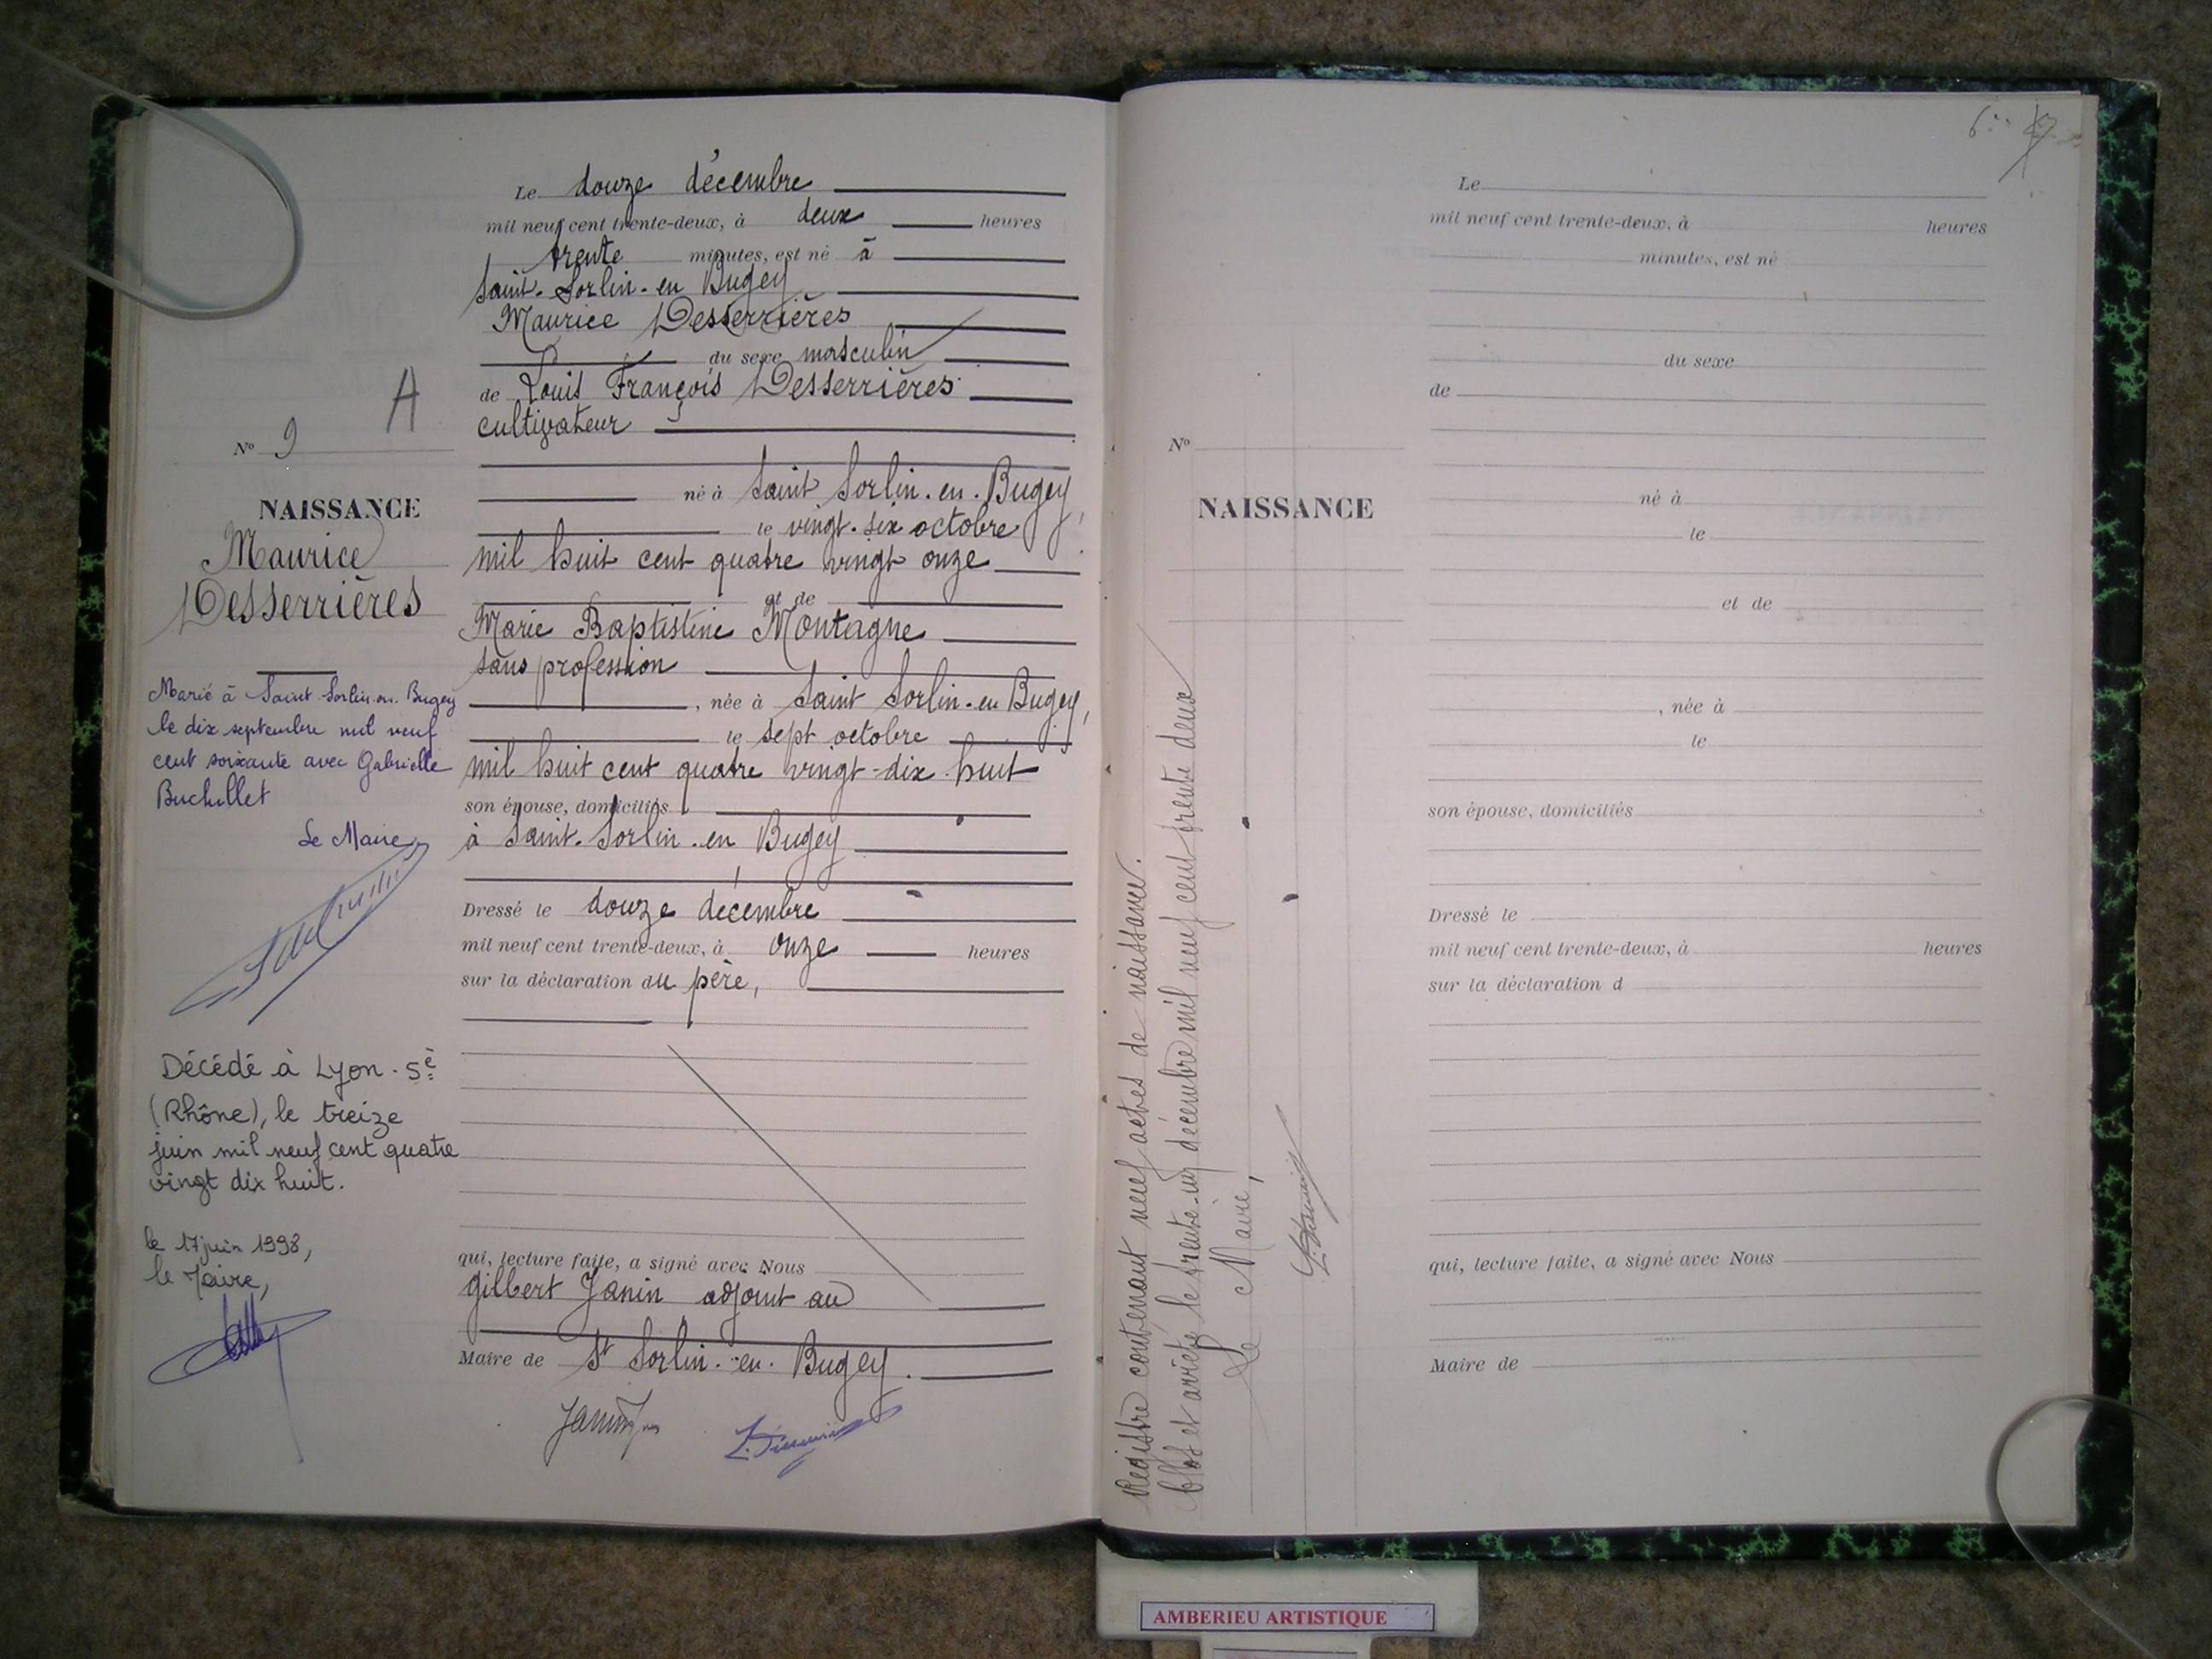 N° 9
A
NAISSANCE
Maurice
Desserrières
Marié à Saint-Sorlin-en-Bugey
le dix septembre mil neuf
cent soixante avec Gabrielle
Buchillet
Le Maire
Décédé à Lyon-5è
(Rhône), le treize
juin mil neuf cent quatre
vingt dix huit.
le 17 juin 1998,
le Maire,
Le douze décembre
mil neuf cent trente-deux, à deux heures
trente minutes, est né à
Saint-Sorlin-en Bugey
Maurice Desserrières
du sexe masculin
de Louis François Desserrières
cultivateur
né à Saint Sorlin-en-Bugey,
le vingt-six octobre
mil huit cent quatre vingt onze
et de
Marie Baptistine Montagne
sans profession
, née à Saint Sorlin-en Bugey,
le sept octobre
mil huit cent quatre vingt-dix-huit
son épouse, domiciliés
à Saint-Sorlin-en Bugey
Dressé le douze décembre
mil neuf cent trente-deux, à onze heures
sur la déclaration du père,
qui, lecture faite, a signé avec Nous
Gilbert Janin adjoint au
Maire de St Sorlin-en-Bugey.
Janin
Registre contenant neuf actes de naissance.
Clos et arrêté le trente-un décembre mil neuf cent trente deux
Le Maire,
N°
NAISSANCE
Le
mil neuf cent trente-deux, à heures
minutes, est né
du sexe
de
né à
le
et de
, née à
le
son épouse, domiciliés
Dressé le
mil neuf cent trente-deux, à heures
sur la déclaration d
qui, lecture faite, a signé avec Nous
Maire de
AMBERIEU ARTISTIQUE